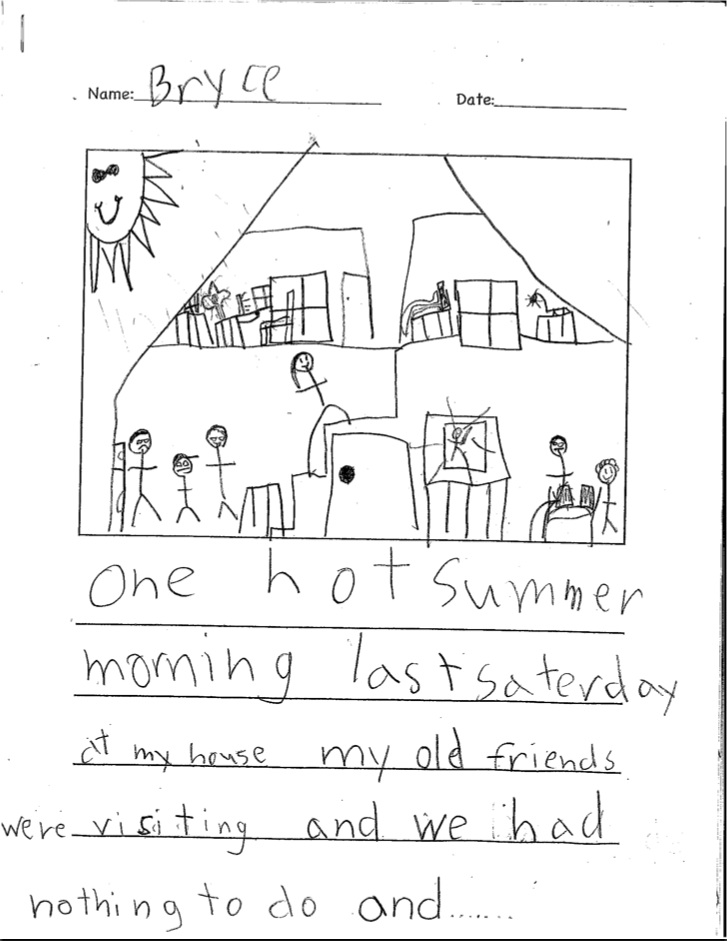 Name: Bryce Date:
One hot summer
morning last saterday
at my house my old friends
were visiting and we had
nothing to do and.......